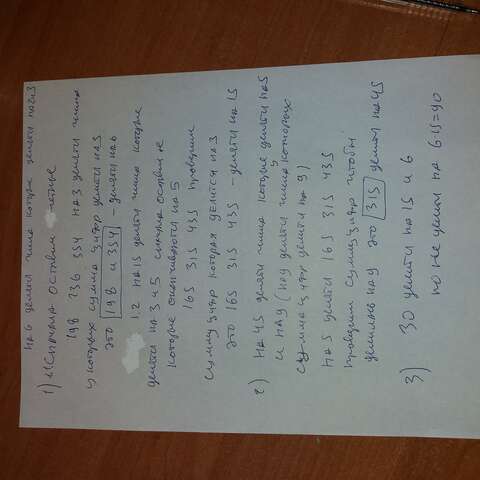 на 6 делятся числа которые делятся на 2 и 3
1) 1.1 Сначала оставим четные
198 236 354 на 3 делятся числа
у которых сумма цифр делится на 3
это 198 и 354 - делятся на 6
1.2 на 15 делятся числа которые
делятся на 3 и 5 сначала оставим те
которые оканчиваются на 5
165 315 435 проверим
сумму цифр которая делится на 3
это 165 315 435 - делятся на 15
2) на 45 делятся числа которые делятся на 5
и на 9 (на 9 делятся числа которых
сумма цифр делится на 9)
на 5 делится 165 315 435
проверим сумму цифр чтобы
делилась на 9 это 315 делится на 45
3) 30 делится на 15 и 6
но не делится на 6·15=90